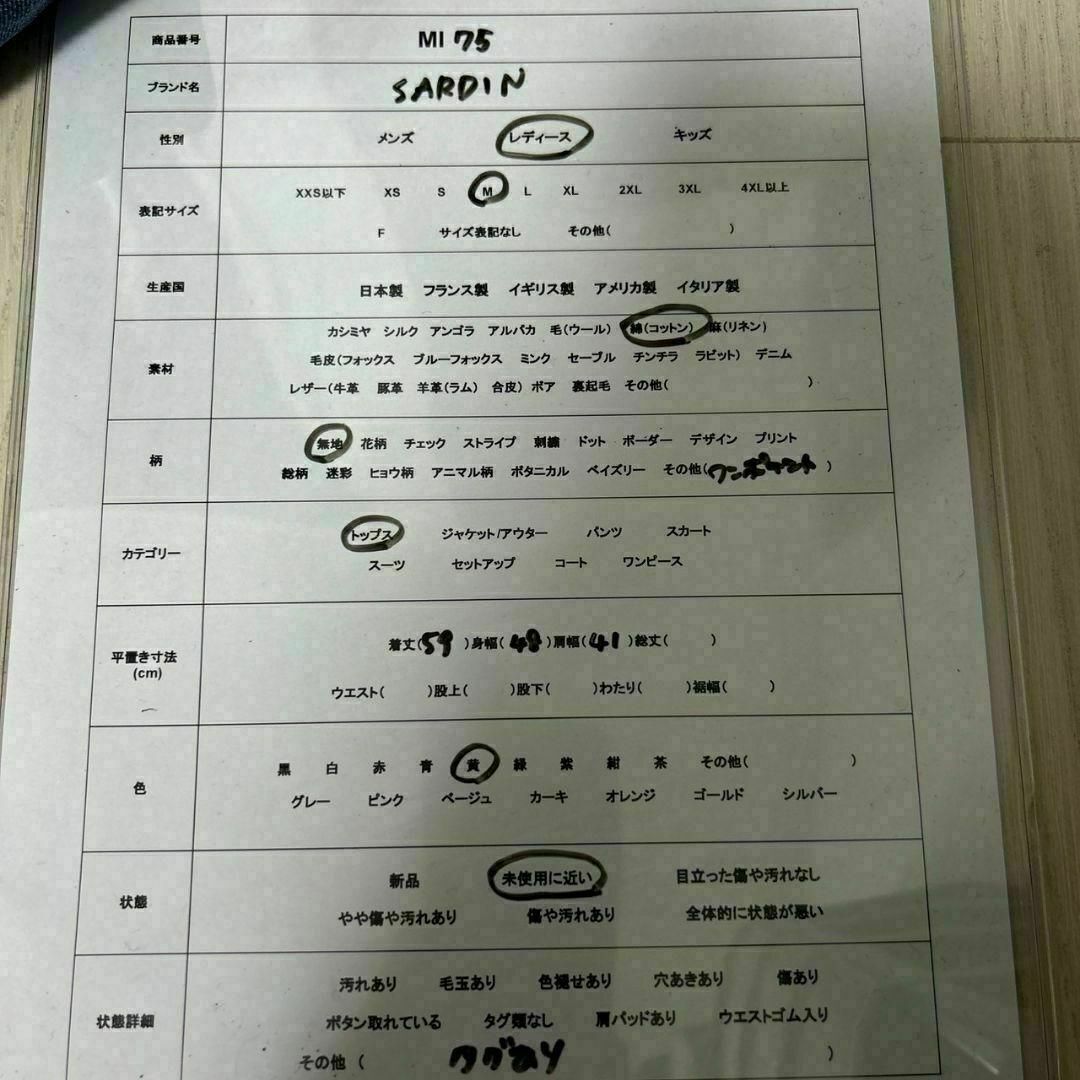 商品番号 MI 75
ブランド名 SARDIN
性別 メンズ レディース キッズ
表記サイズ XXS以下 XS S M L XL 2XL 3XL 4XL以上
F サイズ表記なし その他( )
生産国 日本製 フランス製 イギリス製 アメリカ製 イタリア製
素材 カシミヤ シルク アンゴラ アルパカ 毛(ウール) 綿(コットン) 麻(リネン)
毛皮(フォックス ブルーフォックス ミンク セーブル チンチラ ラビット) デニム
レザー(牛革 豚革 羊革(ラム) 合皮) ボア 裏起毛 その他( )
柄 無地 花柄 チェック ストライプ 刺繍 ドット ボーダー デザイン プリント
総柄 迷彩 ヒョウ柄 アニマル柄 ボタニカル ペイズリー その他(ワンポイント)
カテゴリー トップス ジャケット/アウター パンツ スカート
スーツ セットアップ コート ワンピース
平置き寸法 (cm) 着丈(59)身幅(48)肩幅(41)総丈( )
ウエスト( )股上( )股下( )わたり( )裾幅( )
色 黒 白 赤 青 黄 緑 紫 紺 茶 その他( )
グレー ピンク ベージュ カーキ オレンジ ゴールド シルバー
状態 新品 未使用に近い 目立った傷や汚れなし
やや傷や汚れあり 傷や汚れあり 全体的に状態が悪い
状態詳細 汚れあり 毛玉あり 色褪せあり 穴あきあり 傷あり
ボタン取れている タグ類なし 肩パッドあり ウエストゴム入り
その他 ( タグあり )